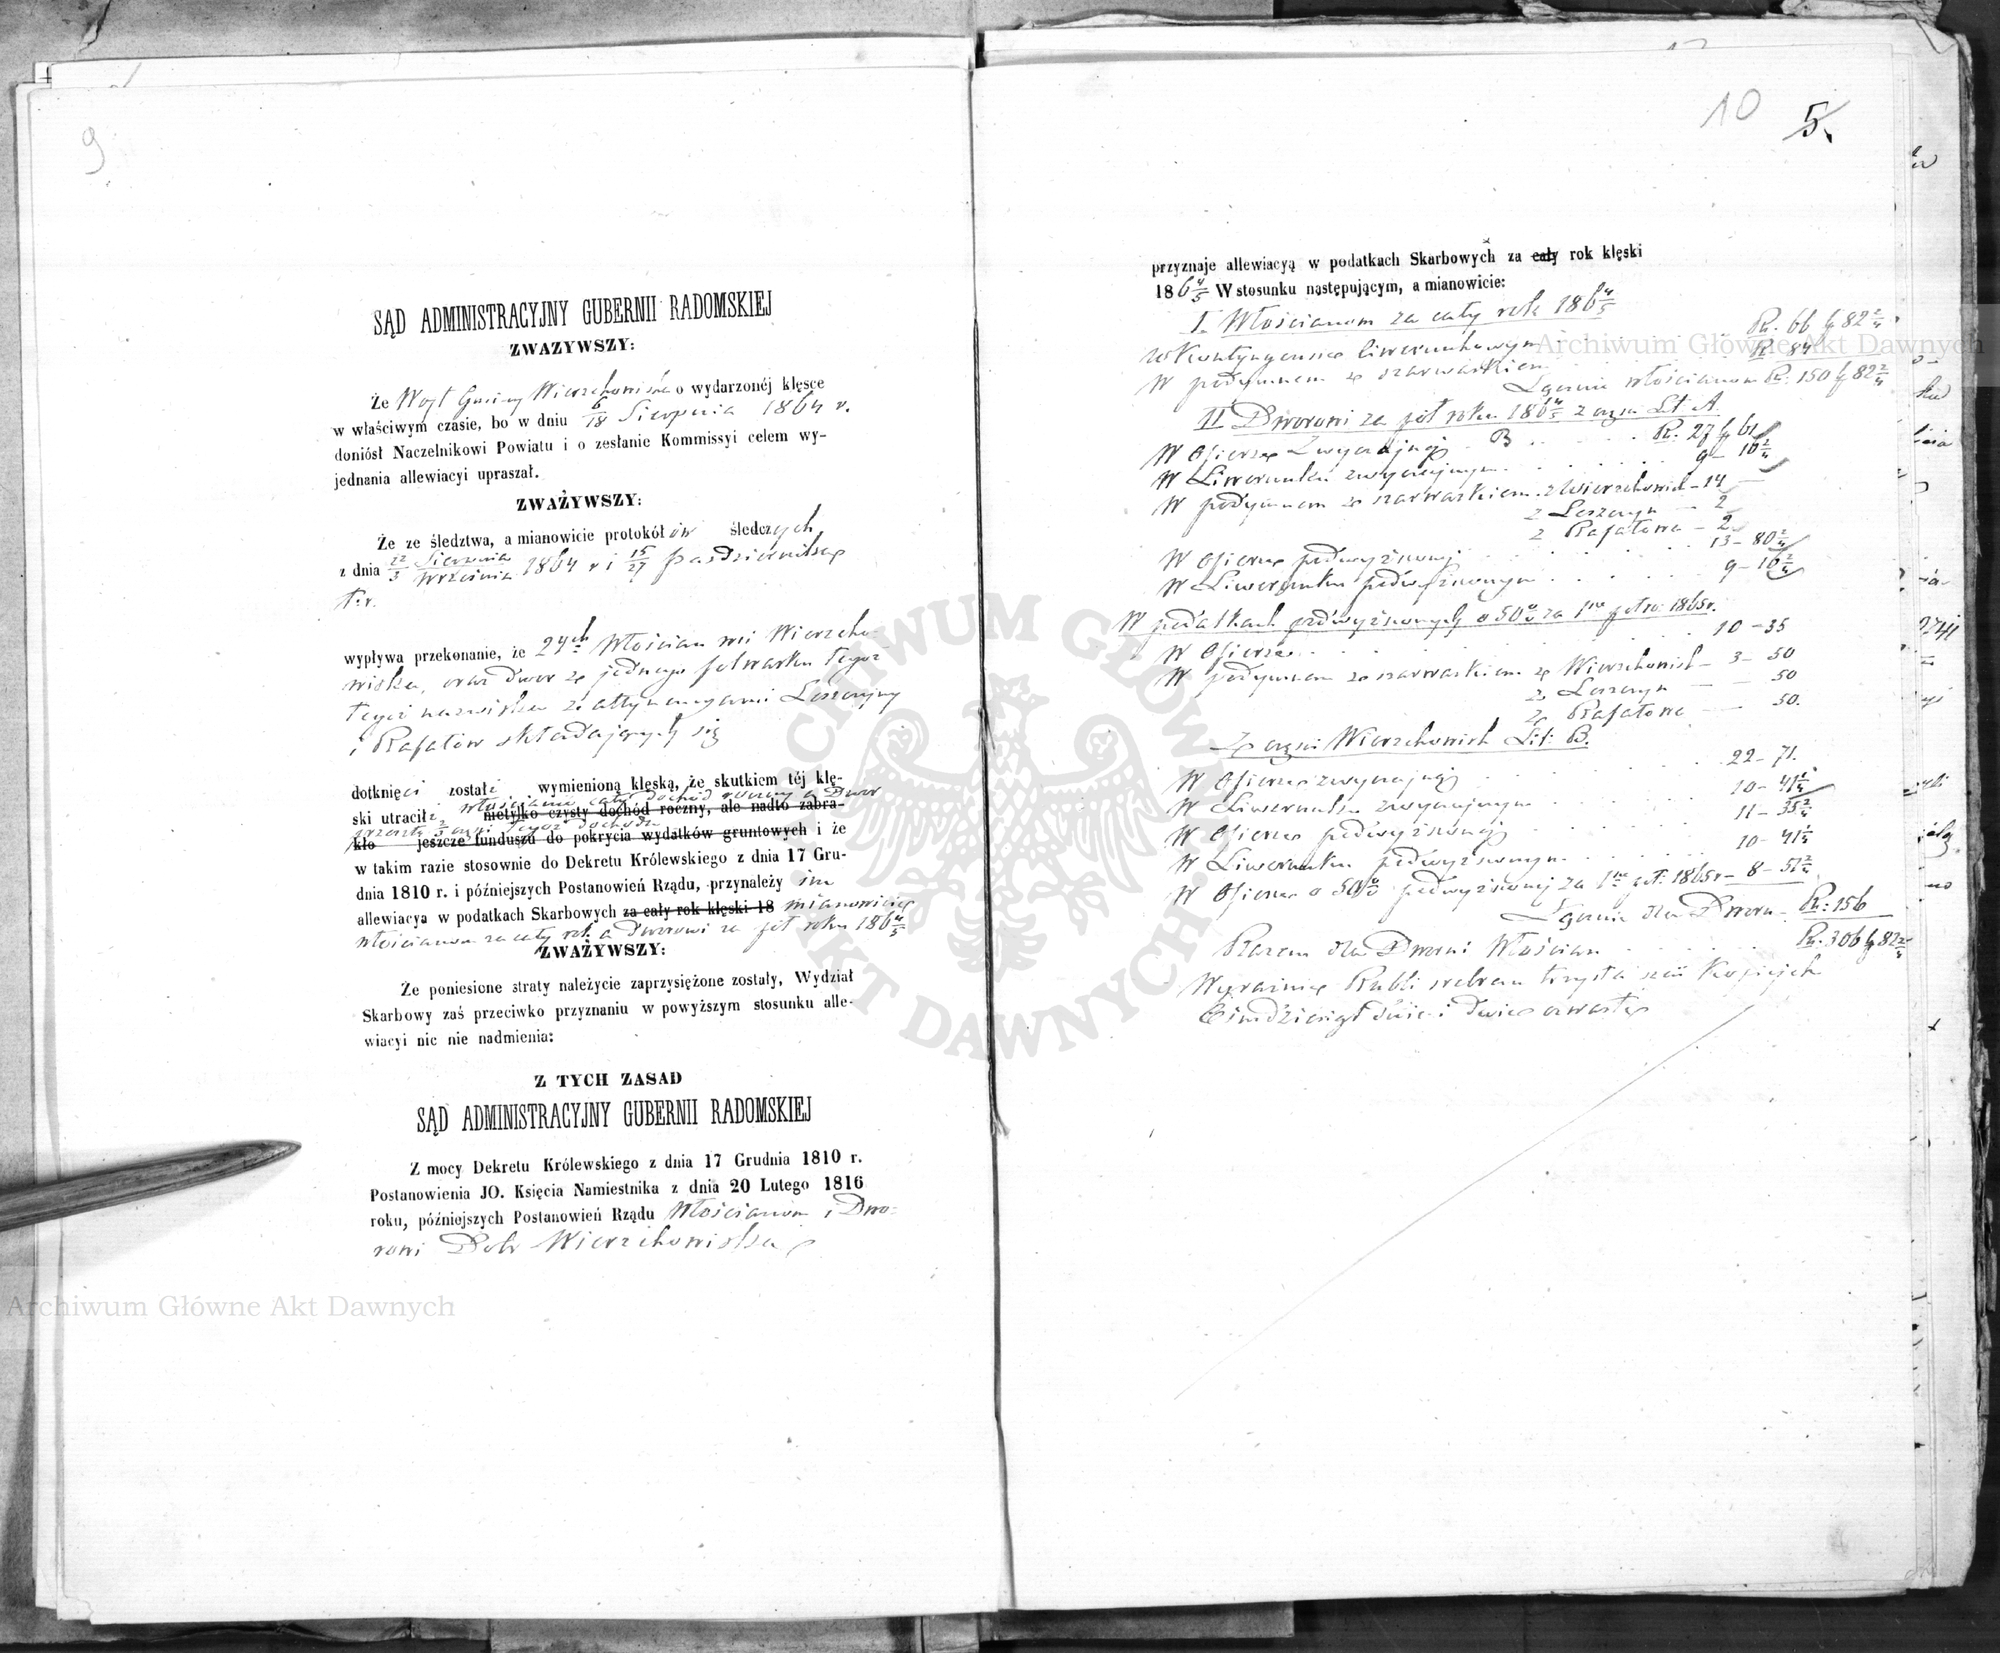 9
SĄD ADMINISTRACYJNY GUBERNII RADOMSKIEJ
ZWAŻYWSZY:
Że Wójt Gminy Wierzchowiska o wydarzonéj klęsce
w właściwym czasie, bo w dniu 6/18 Sierpnia 1864 r.
doniósł Naczelnikowi Powiatu i o zesłanie Kommissyi celem wy-
jednania allewiacyi upraszał.
ZWAŻYWSZY:
Że ze śledztwa, a mianowicie protokółów śledczych
z dnia 22/3 Sierpnia/Września 1864 r i 15/27 Pazdziernika
t. r.
wypływa przekonanie, że 24ch Włościan wsi Wierzcho-
wiska, oraz Dwór z jednego folwarku tegoż
tegoż nazwiska z attynencyami Leszczyny
i Rafałów składający się
dotknięci zostali wymienioną klęską, że skutkiem téj klę-
włościanie cały dochód roczny a Dwór
ski utracili nietylko czysty dochód roczny, ale nadto zabra-
tegoż dochodu
kło jeszcze funduszu do pokrycia wydatków gruntowych i że
w takim razie stosownie do Dekretu Królewskiego z dnia 17 Gru-
dnia 1810 r. i późniejszych Postanowień Rządu, przynależy im
allewiacya w podatkach Skarbowych za cały rok klęski 18 mianowicie
włościanom za cały rok a Dworowi za pół roku 186 4/5
ZWAŻYWSZY:
Że poniesione straty należycie zaprzysiężone zostały, Wydział
Skarbowy zaś przeciwko przyznaniu w powyższym stosunku alle-
wiacyi nic nie nadmienia:
Z TYCH ZASAD
SĄD ADMINISTRACYJNY GUBERNII RADOMSKIEJ
Z mocy Dekretu Królewskiego z dnia 17 Grudnia 1810 r.
Postanowienia JO. Księcia Namiestnika z dnia 20 Lutego 1816
roku, późniejszych Postanowień Rządu Włościanom i Dwo-
rowi Dóbr Wierzchowiska
Archiwum Główne Akt Dawnych
10 5.
przyznaje allewiacyą w podatkach Skarbowych za cały rok klęski
186 4/5 W stosunku następującym, a mianowicie:
I. Włościanom za cały rok 186 4/5
w Kontyngensie liwerunkowym Rs. 66 k 82 2/4
W podymnem ze szarwarkiem R 84
Łącznie włościanom Rs. 150 k 82 2/4
II Dworowi za pół roku 186 4/5 z części Lit. A.
W Ofierze Zwyczajnéj B Rs. 27 k 61
W Liwerunku zwyczajnym 9 – 16 2/4
W podymnem ze szarwarkiem z Wierzchowisk – 14
z Leszczyn – 2
z Rafałowa – 2
W Ofierze podwyższonéj 13 – 80 2/4
W Liwerunku podwyższonym 9 – 16 2/4
W podatkach podwyższonych o 50% za 1sze półro: 1865 r.
W Ofierze 10 – 35
W podymnem ze szarwarkiem z Wierzchowisk – 3 – 50
z Leszczyn — 50
z Rafałowa — 50.
Z części Wierzchowisk Lit: B.
W Ofierze zwyczajnéj 22 – 71.
W Liwerunku zwyczajnym 10 – 41 2/4
W Ofierze podwyższonéj 11 – 35 2/4
W Liwerunku podwyższonym 10 – 41 2/4
W Ofierze o 50% podwyższonéj za 1sze pół: 1865 r – 8 – 51 2/4
Łącznie dla Dworu Rs: 156
Razem dla Dworu i Włościan Rs. 306 k 82 2/4
Wyraźnie Rubli srebrem trzysta sześć Kopiejek
Ośmdziesiąt dwie i dwie czwarte
Archiwum Główne Akt Dawnych
ARCHIWUM GŁÓWNE AKT DAWNYCH